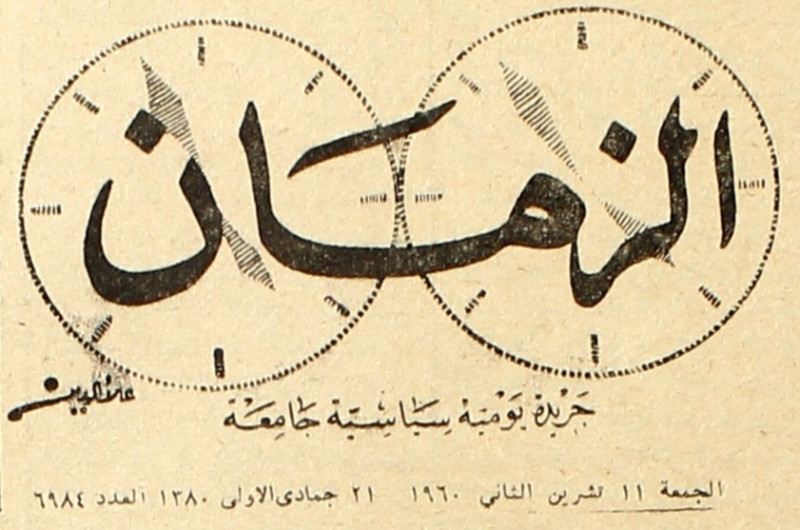 الزمان
علاء الدين
جَريدة يَوميّة سيَاسيّة جَامِعَة
الجمعة ١١ تشرين الثاني ١٩٦٠ ٢١ جمادى الاولى ١٣٨٠ العدد ٦٩٨٤